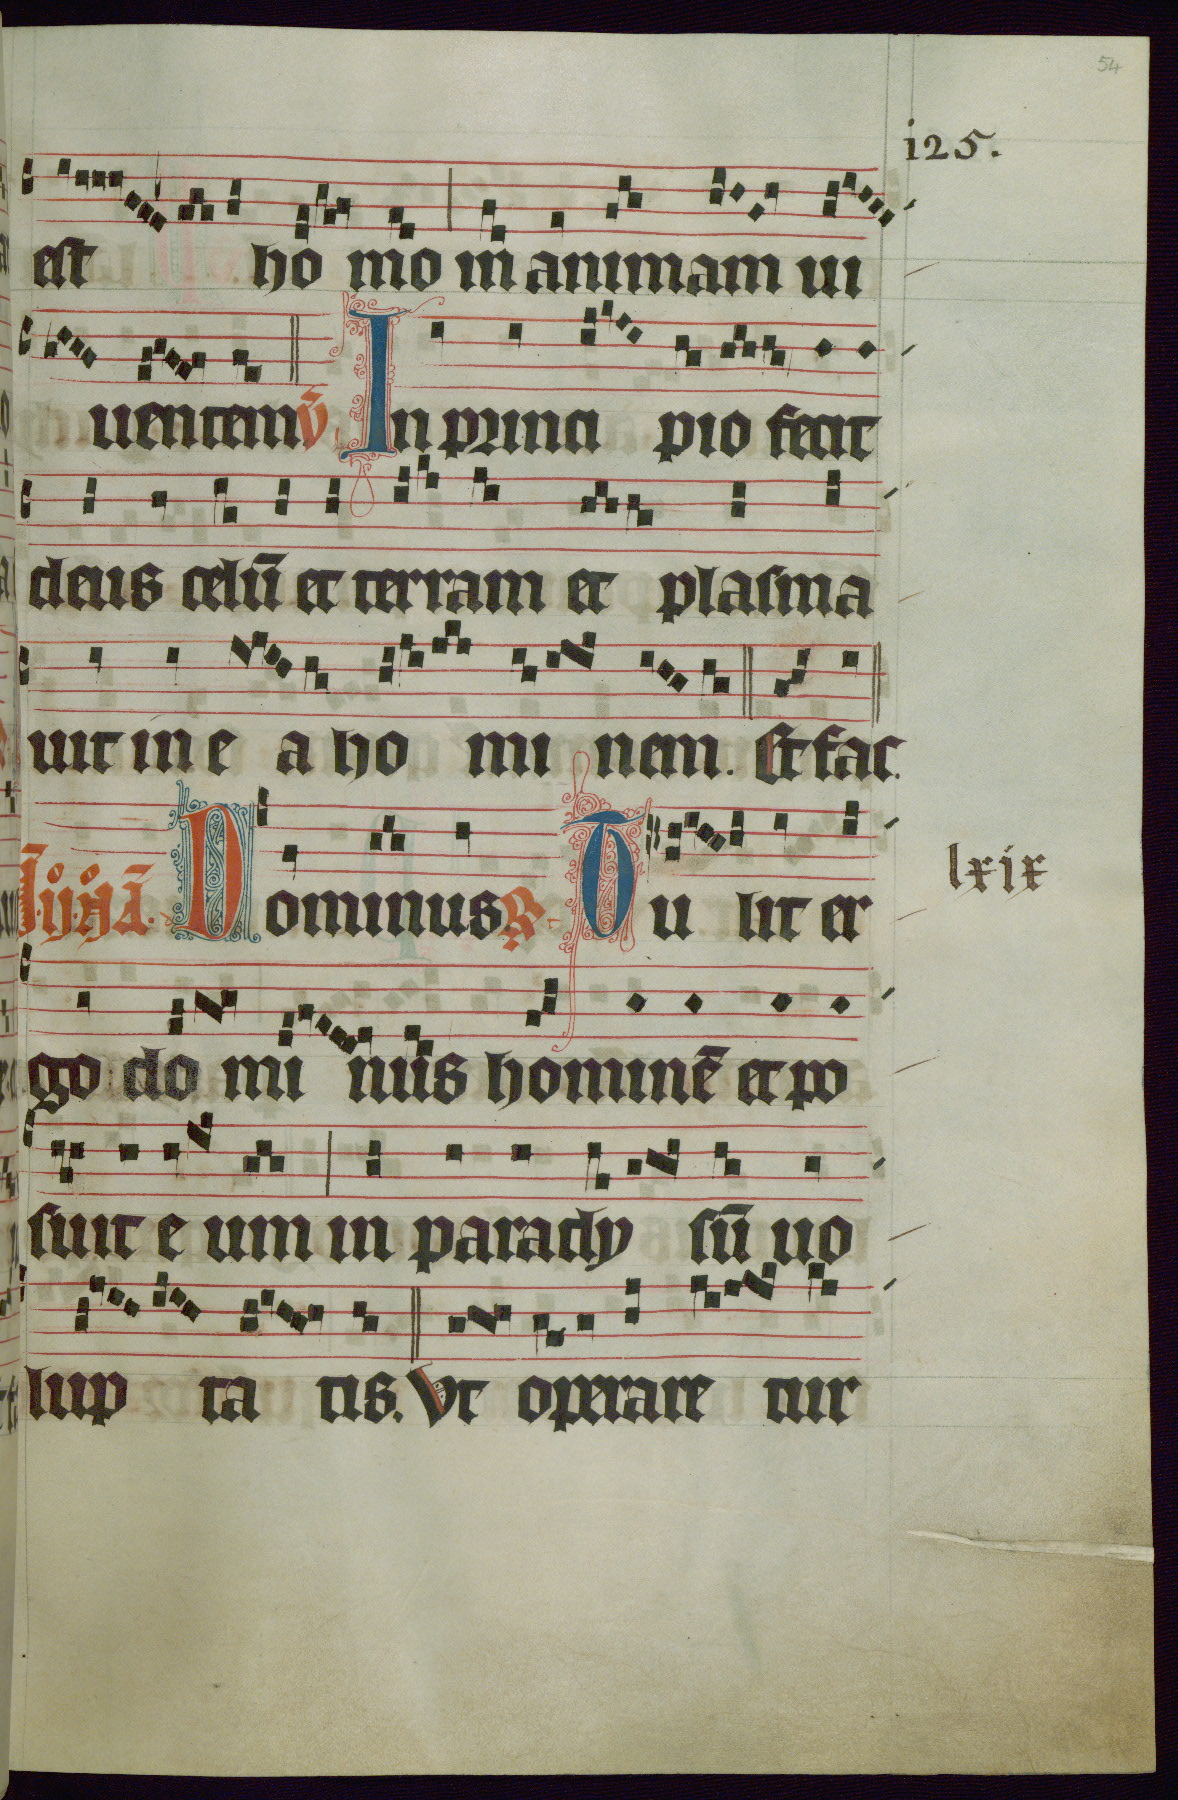 54
i25.
est ho mo in animam ui
uentem v̄. In princi pio fecit
deus celū et terram et plasma
uit in e a ho mi nem. Et fac.
Dominus R. Tu lit er
lxix
go do mi nus hominē et po
suit e um in parady sū uo
lup ta tis. Vt operare tur